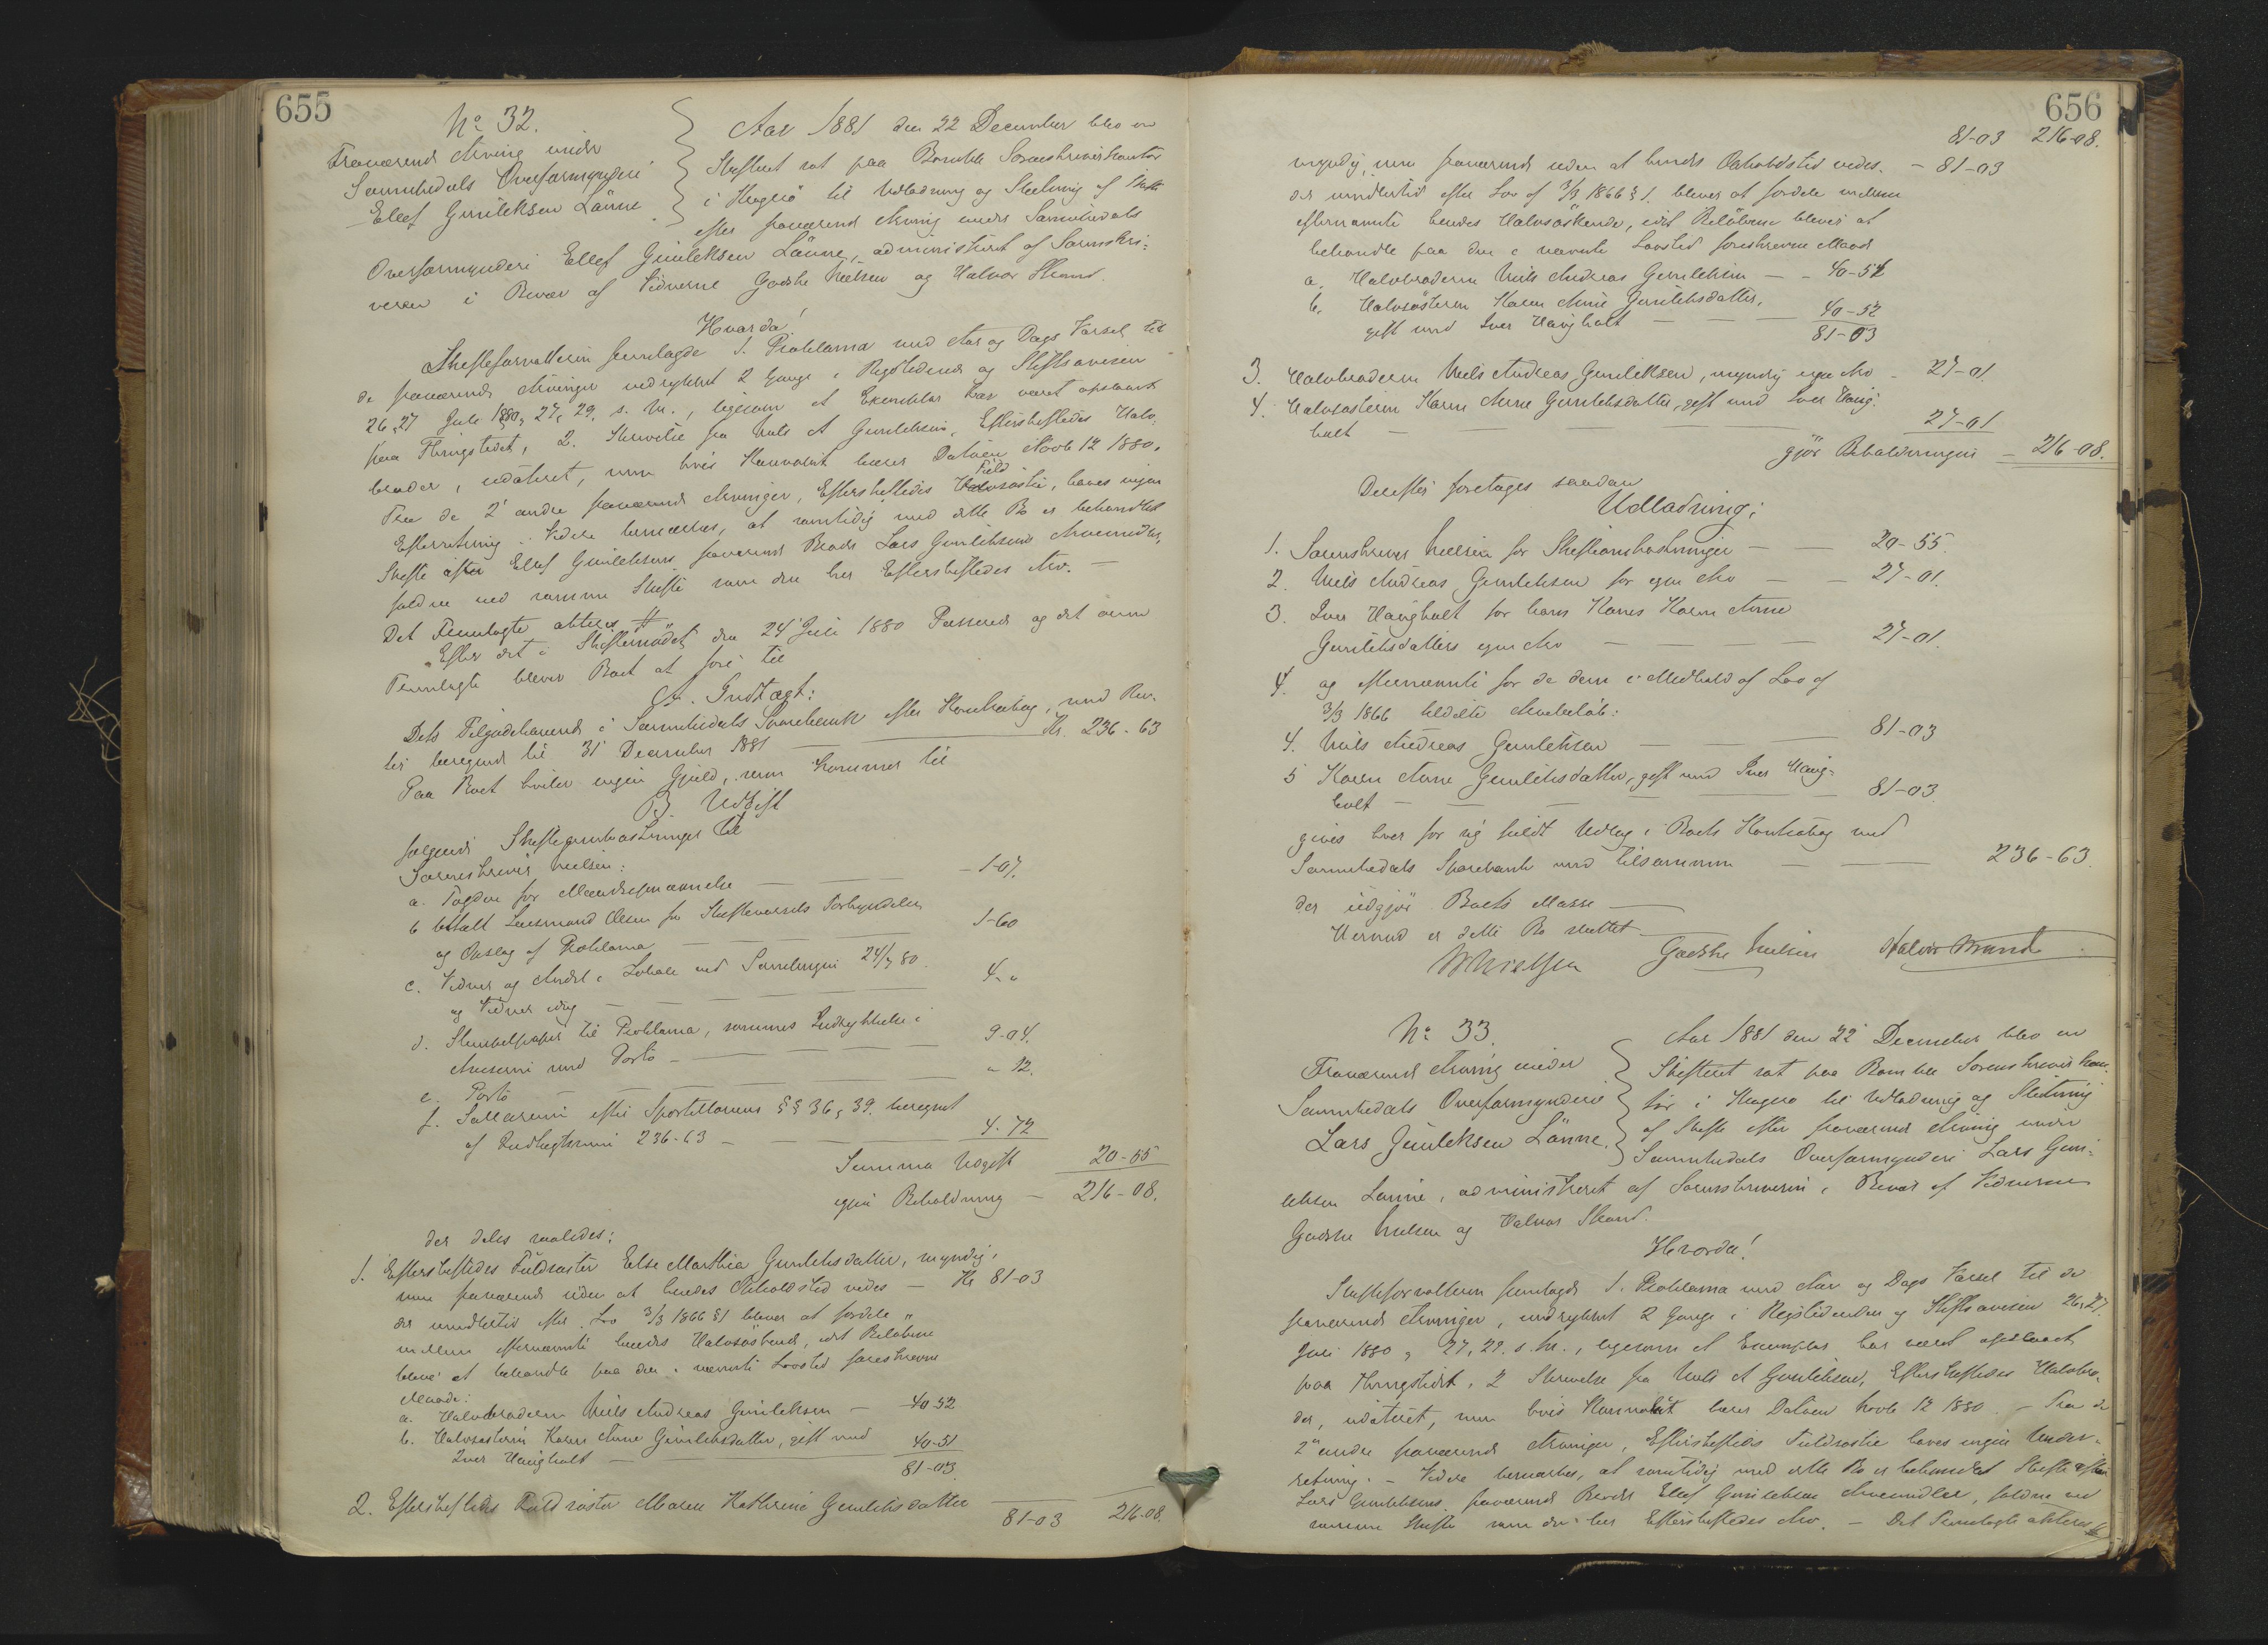 655
No 32.
Fraværende Arving under
Sannikedals Overformynderi
Ellef Gunleksen Lönne
Aar 1881 den 22 December blev en
Skifteret sat paa Bamble Sorenskriverkontor
i Kragerö til Udlodning og Slutning af Skifte
efter fraværende Arving under Sannikedals
Overformynderi Ellef Gunleksen Lönne, administreret af Sorenskri-
veren i Overvær af Vidnerne Godske Nielsen og Halvor Strand.
Hvorda!
Skifteforvalteren fremlagde 1. Proklama med Aar og Dags Varsel til
de fraværende Arvinger indrykket 2 Gange i Rigstidende og Stiftsavisen
26, 27 Juli 1880, 27, 29. s. M., ligesom et Exemplar har været opslaaet
paa Thingstedet, 2. Skrivelse fra Niels A Gunleksen, Efterskiftedes Halv-
broder, udateret, men hvis Konvolut bærer Datoen Novb 12 1880.
Fra de 2 andre fraværende Arvinger, Efterskiftedes Fuld Halvsöstre, haves ingen
Efterretning. Videre bemærkes, at samtidig med dette Bo er behandlet
Skifte efter Ellef Gunleksens fraværende Broder Lars Gunleksens Arvemidler,
faldne ved samme Skifte som den her Efterskiftedes Arv. —
Det Fremlagte akteres #
Efter det i Skiftemödet den 24 Juli 1880 Passerede og det nu
Fremlagte blever Boet at före til
A. Indtægt:
Dets Tilgodehavende i Sannikedals Sparebank efter Kontrabog, med Ren-
ter beregnede til 31 December 1881 — Kr. 236-63
Paa Boet hviler ingen Gjæld, som kommer til
B. Udgift
fölgende Skifteomkostninger til
Sorenskriver Nielsen:
a. Fogden for Mændsopnævnelse — 1-07.
b betalt Lensmand Olsen for Skiftevarsels Forkyndelse
og Opslag af Proklama — 1-60
c. Vidner og Andel i Lokale ved Samlingen 24/7 80
og Vidner idag — 4 - "
d. Stempelpapir til Proklama, sammes Indrykkelse i
Aviserne med Porto — 9-04.
e. Porto — " 12.
f. Sallarium efter Sportellovens §§ 36, 39. beregnet
af Indtægtssummen 236-63 — 4-72
Summa Udgift 20-55
igjen Beholdning — 216-08.
der deles saaledes:
1. Efterskiftedes Fuldsöster Else Marthea Gunleksdatter, myndig,
men fraværende uden at hendes Opholdssted vides — Kr 81-03
der imidlertid efter Lov 3/3 1866 § 1 blever at fordele
mellem efternævnte hendes Halvsöskende, idet Belöbene
bliver at behandle paa den i nævnte Lovsted foreskrevne
Maade:
a. Halvbroderen Niels Andreas Gunleksen — 40-52
b. Halvsösteren Karen Anne Gunleksdatter, gift med
Iver Haugholt — 40-51
81-03.
2. Efterskiftedes Fuldsöster Maren Kathrine Gunleksdatter
81-03 216-08.
656
81-03 216-08.
myndig, men fraværende uden at hendes Opholdssted vides. — 81-03
der imidlertid efter Lov af 3/3 1866 § 1. blever at fordele mellem
efternævnte hendes Halvsöskende, idet Belöbene blever at
behandle paa den i nævnte Lovsted foreskrevne Maade
a. Halvbroderen Niels Andreas Gunleksen — 40-51
b. Halvsösteren Karen Anne Gunleksdatter,
gift med Iver Haugholt — 40-52
81-03
3. Halvbroderen Niels Andreas Gunleksen, myndig egen Arv — 27-01.
4. Halvsösteren Karen Anne Gunleksdatter, gift med Iver Haug-
holt — 27-01
gjör Beholdningen — 216-08.
Derefter foretages saadan
Udlodning:
1. Sorenskriver Nielsen for Skifteomkostninger — 20-55.
2. Niels Andreas Gunleksen for egen Arv — 27-01.
3. Iver Haugholt for hans Kones Karen Anne
Gunleksdatters egen Arv — 27-01.
4. og efternævnte for de dem i Medhold af Lov af
3/3 1866 tildelte Arvebelöb:
4. Niels Andreas Gunleksen — 81-03
5 Karen Anne Gunleksdatter, gift med Iver Haug-
holt — 81-03.
gives hver for sig fuldt Udlæg i Boets Kontrabog med
Sannikedals Sparebank med tilsammen — 236-63.
der udgjör Boets Masse —
Hermed er dette Bo sluttet
Nielsen Godske Nielsen Halvor Strand
No 33.
Fraværende Arving under
Sannikedals Overformynderi
Lars Gunleksen Lönne.
Aar 1881 den 22 December blev en
Skifteret sat paa Bamble Sorenskriverkon-
tor i Kragerö til Udlodning og Slutning
af Skifte efter fraværende Arving under
Sannikedals Overformynderi Lars Gun-
leksen Lönne, administreret af Sorenskriveren i Overvær af Vidnerne
Godske Nielsen og Halvor Strand.
Hvorda!
Skifteforvalteren fremlagde 1. Proklama med Aar og Dags Varsel til de
fraværende Arvinger, indrykket 2 Gange i Rigstidenden og Stiftsavisen 26, 27.
Juli 1880, 27, 29. s. M., ligesom et Exemplar har været opslaaet
paa Thingstedet, 2 Skrivelse fra Niels A Gunleksen, Efterskiftedes Halvbro-
der, udateret, men hvis Konvolut bærer Datoen Novb 12 1880. — Fra de
2 andre fraværende Arvinger, Efterskiftedes Fuldsöstre haves ingen Under-
retning. — Videre bemærkes, at samtidig med dette Bo er behandlet Skifte efter
Lars Gunleksens fraværende Broder Ellef Gunleksens Arvemidler, faldne ved
samme Skifte som den her Efterskiftedes Arv. — Det Fremlagte akteres #